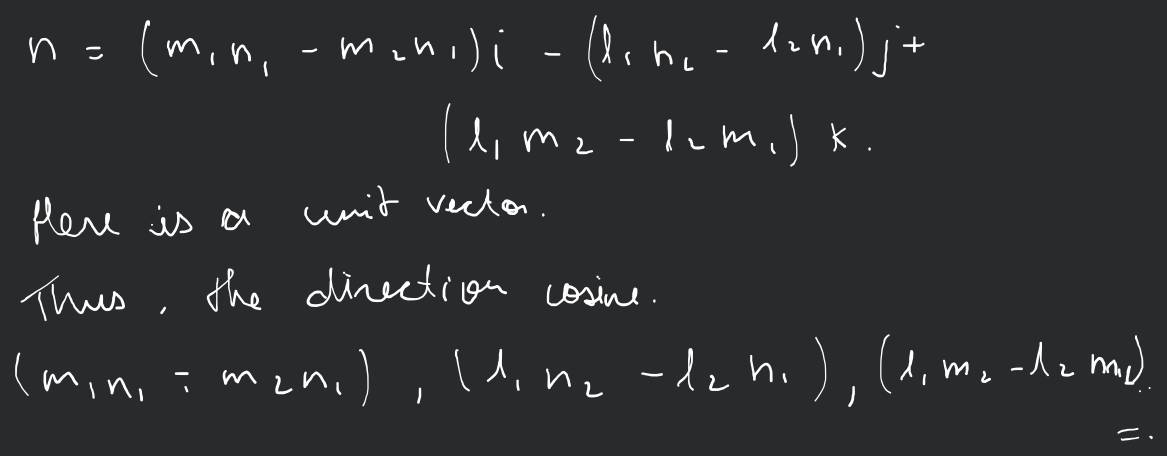 n = (m₁n₁ - m₂n₁)i - (l₁n₂ - l₂n₁)j +
(l₁m₂ - l₂m₁) k.
Here is a unit vector.
Thus, the direction cosine.
(m₁n₁ - m₂n₁), (l₁n₂ - l₂n₁), (l₁m₂ - l₂m₁).
=.